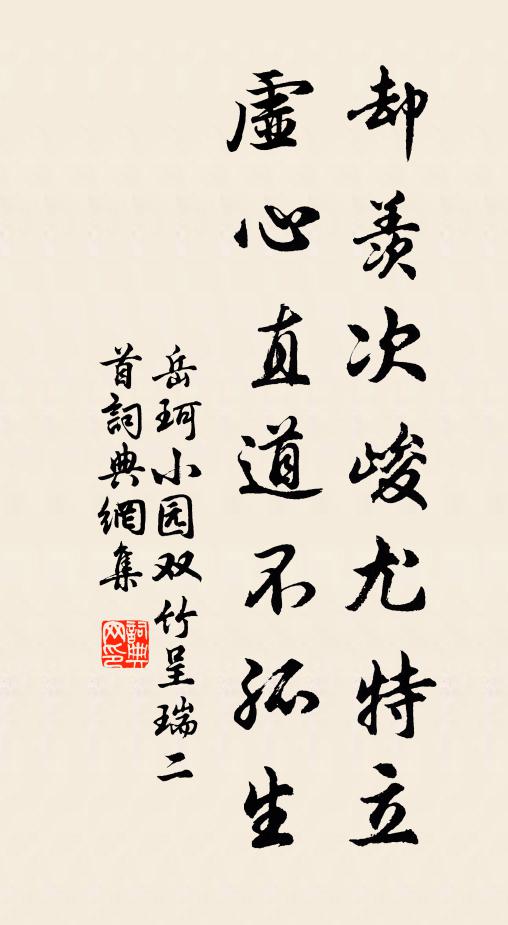 却羡次峻尤特立
虚心直道不孤生
岳珂小园双竹呈瑞二
首詞典網集
詞典网印